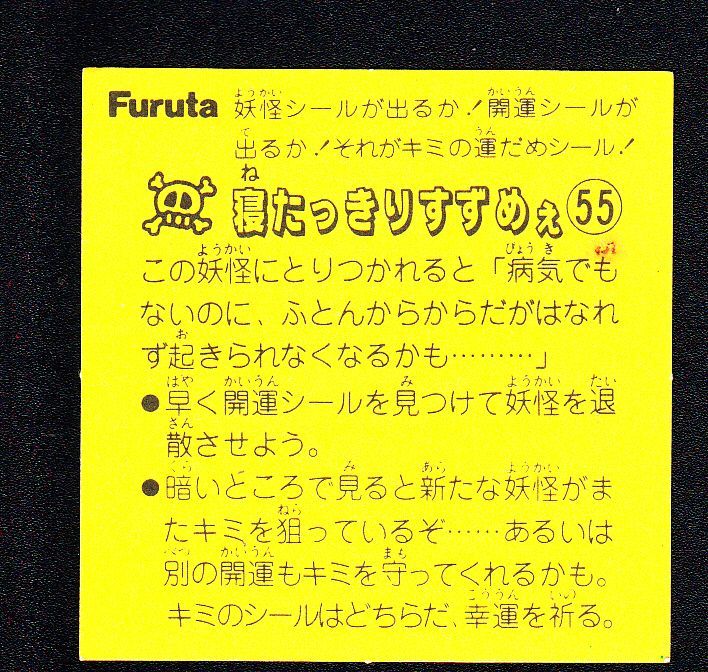 Furuta 妖怪シールが出るか！開運シールが
出るか！それがキミの運だめシール！
寝たっきりすずめぇ 55
この妖怪にとりつかれると「病気でも
ないのに、ふとんからからだがはなれ
ず起きられなくなるかも………」
●早く開運シールを見つけて妖怪を退
散させよう。
●暗いところで見ると新たな妖怪がま
たキミを狙っているぞ……あるいは
別の開運もキミを守ってくれるかも。
キミのシールはどちらだ、幸運を祈る。